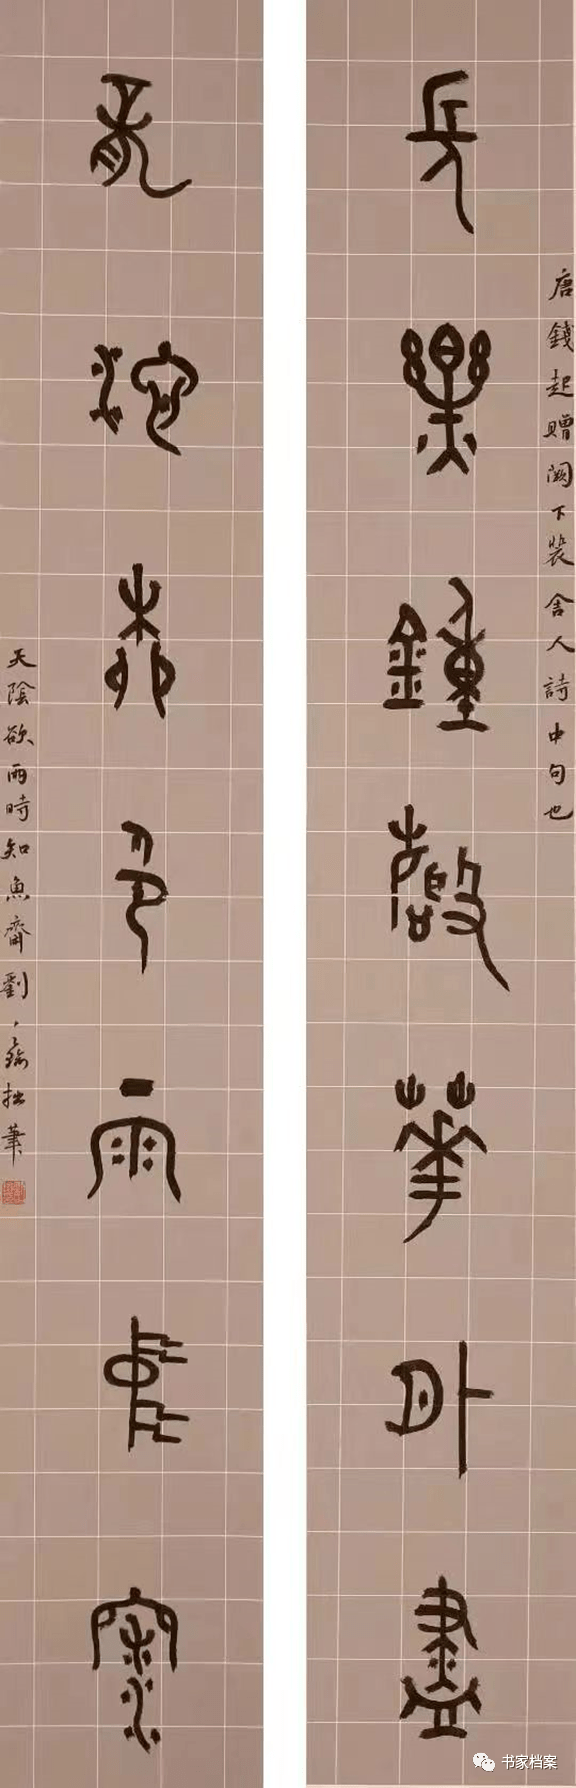 唐錢起贈闕下裴舍人詩中句也
長樂鍾聲華外盡
龍池柳色雨中深
天陰欲雨時知魚齋劉拙筆
书家档案